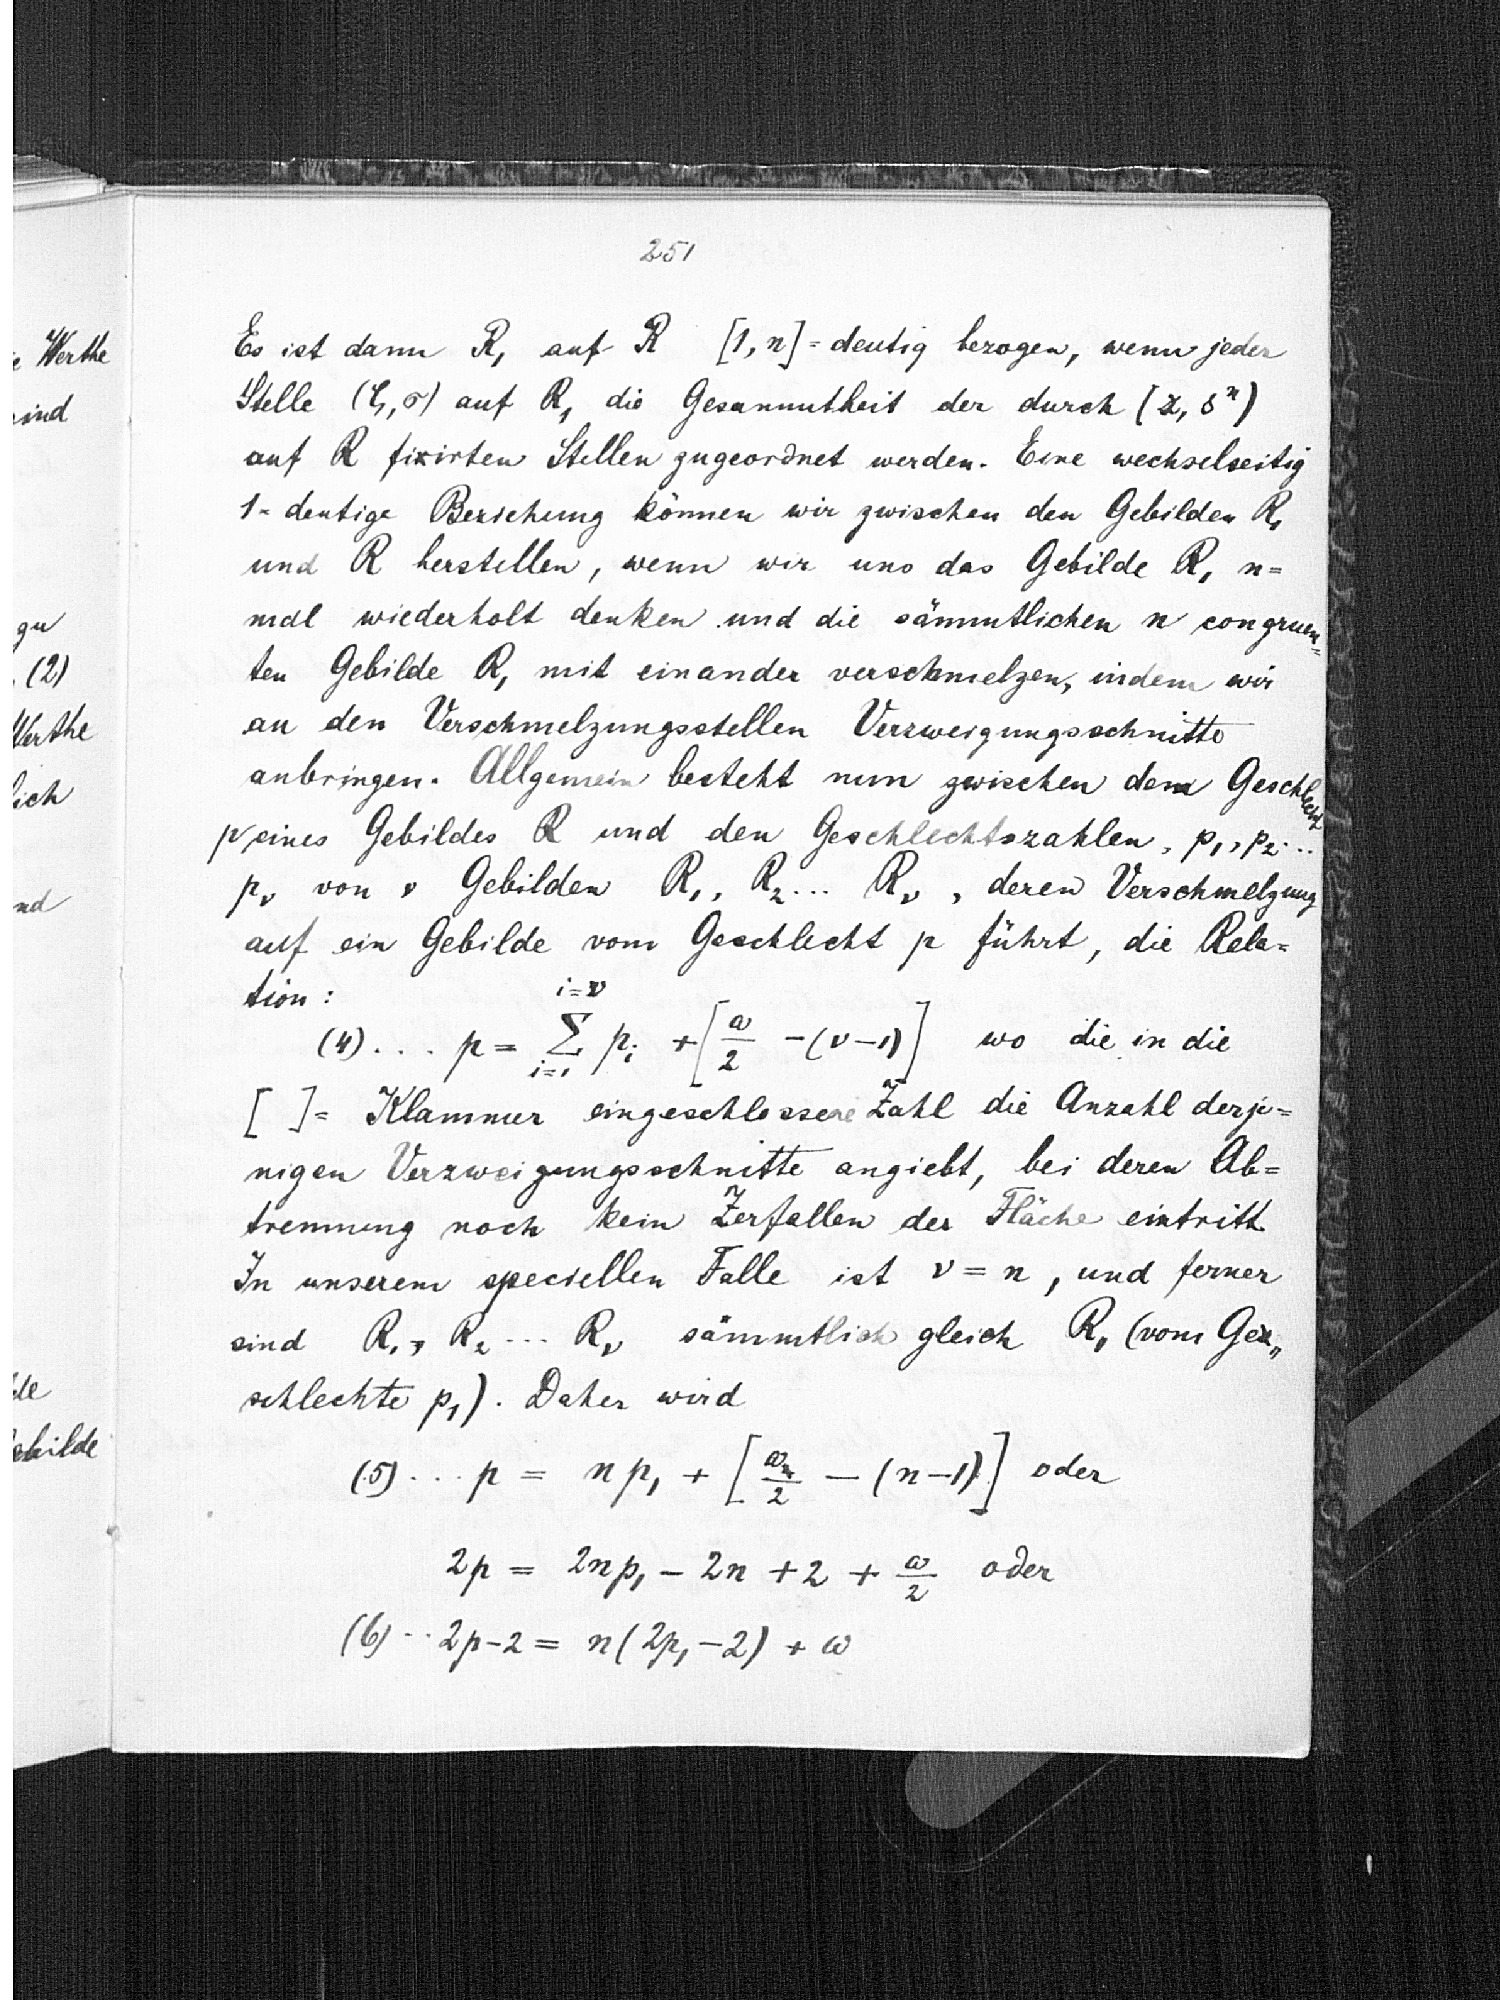 251
Es ist dann R₁ auf R [1, n] = deutig bezogen, wenn jeder
Stelle (ζ, σ) auf R₁ die Gesammtheit der durch (z, sⁿ)
auf R fixirten Stellen zugeordnet werden. Eine wechselseitig
1-deutige Beziehung können wir zwischen den Gebilden R₁
und R herstellen, wenn wir uns das Gebilde R₁ n=
mal wiederholt denken und die sämmtlichen n congruen=
ten Gebilde R₁ mit einander verschmelzen, indem wir
an den Verschmelzungsstellen Verzweigungsschnitte
anbringen. Allgemein besteht nun zwischen dem Geschlecht
p eines Gebildes R und den Geschlechtszahlen, p₁, p₂...
pᵥ von ν Gebilden R₁, R₂... Rᵥ, deren Verschmelzung
auf ein Gebilde vom Geschlecht p führt, die Rela=
tion:
(4)... p = \sum_{i=1}^{i=ν} p_i + [ω/2 - (ν-1)] wo die in die
[ ]= Klammer eingeschlossene Zahl die Anzahl derje=
nigen Verzweigungsschnitte angiebt, bei deren Ab=
trennung noch kein Zerfallen der Fläche eintritt
In unserem speciellen Falle ist ν = n, und ferner
sind R₁, R₂ ... Rᵥ sämmtlich gleich R₁ (vom Ge=
schlechte p₁). Daher wird
(5)... p = np₁ + [ω/2 - (n-1)] oder
2p = 2np₁ - 2n + 2 + ω/2 oder
(6).. 2p-2 = n(2p₁-2) + ω
Werthe
sind
zu
(2)
Werthe
lich
nd
de
Gebilde